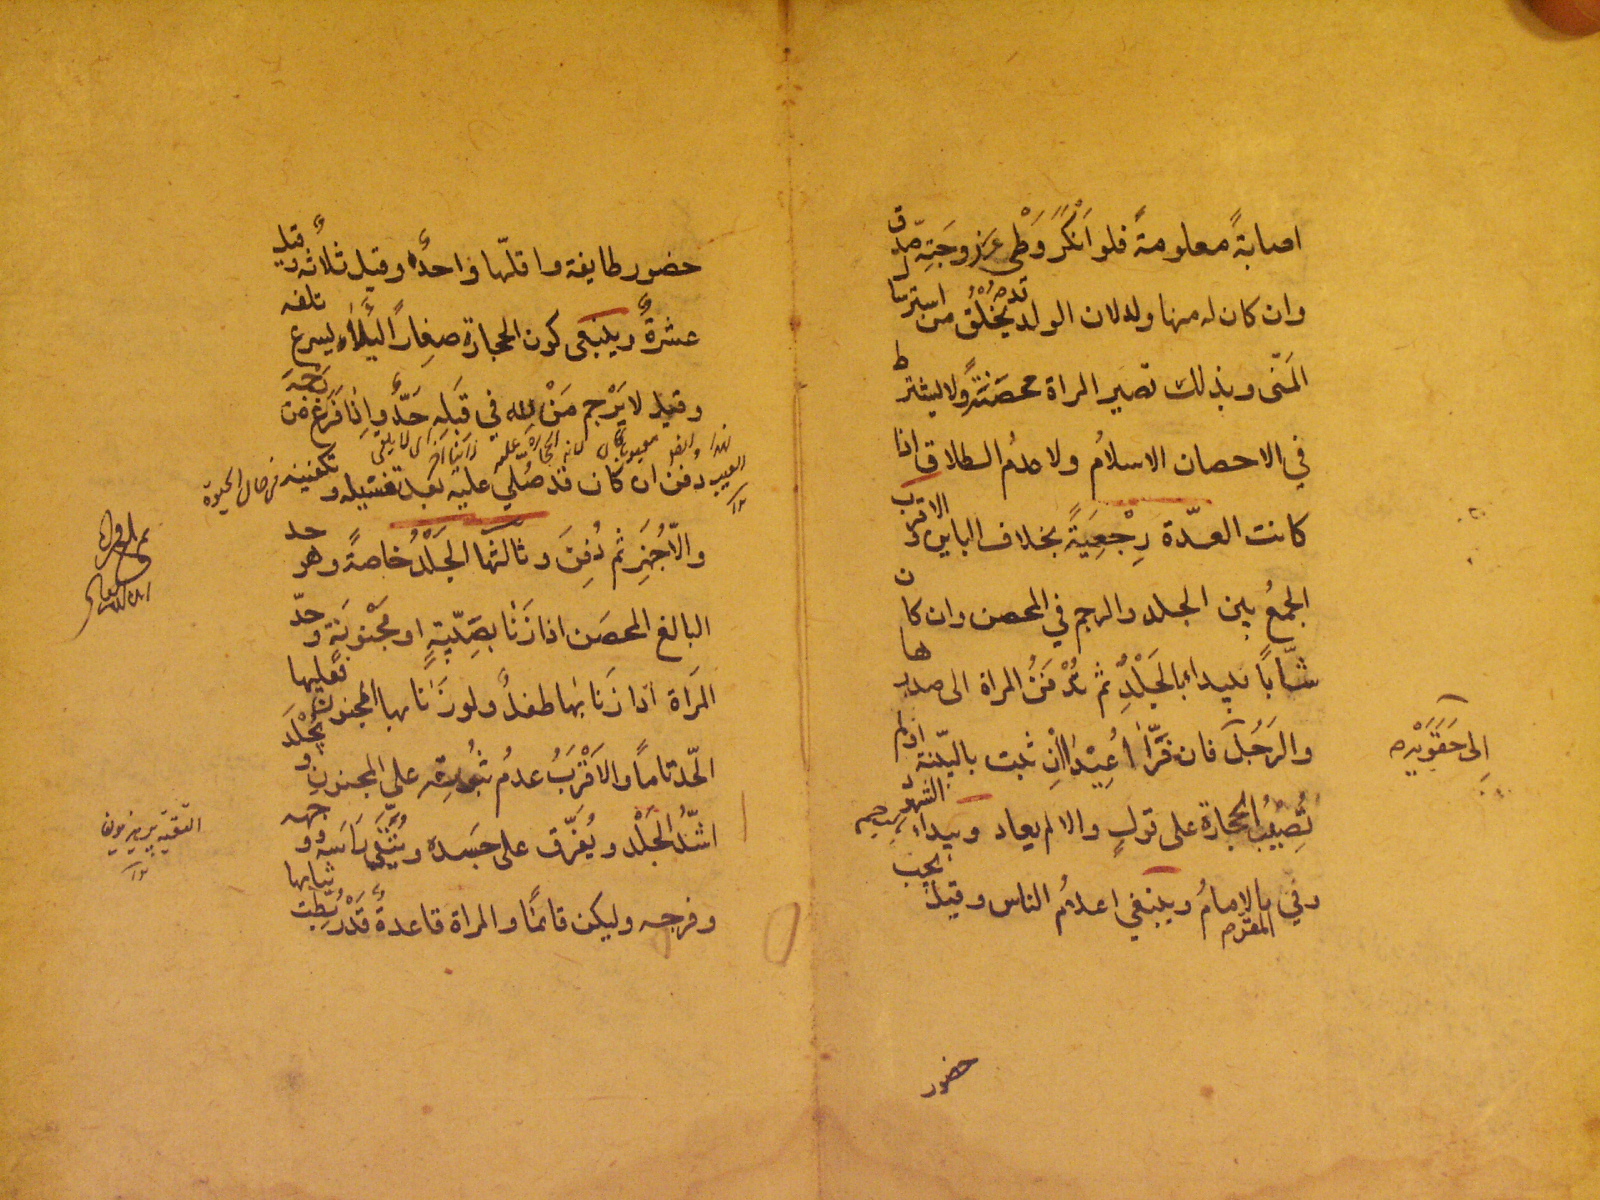 اصابةً معلومةً فلو انكر وطى زوجته صدق
وان كان له منها ولد لان الولد قد يخلق من استرسال
المنى وبذلك تصير المراة محصنة ولا يشترط
في الاحصان الاسلام ولا عدم الطلاق اذا
كانت العدّة رجعيّة بخلاف الباين والاقرب
الجمع بين الجلد والرجم في المحصن وان كان
شابّاً فيبداء بالجلد ثم تدفن المراة الى صدرها
والرجل فان فرّا اعيدا ان ثبت بالبيّنة او لم
تصيب الحجارة على قول والا لم يعاد ويبداء الشهود
وفي المقر الامام وينبغي اعلام الناس وقيل يجب
الى حقويه
حضور
حضور طايفة واقلّها واحد وقيل ثلاثة وقيل
عشرة وينبغى كون الحجارة صغاراً ليلاء يسرع تلفه
وقيل لا يرجم من لله في قبله حدّ واذا فرغ من رجمه
دفن ان كان قد صلّي عليه بعد تغسيله وتكفينه في حال الحيوة
والّا جُهّز ثم دُفِنَ وثالثها الجلد خاصةً وهو حد
البالغ المحصن اذا زنا بصبيّة او مجنونة وحدّ
المراة اذا زنا بها طفل ولو زنا بها المجنون فعليها
الحّد تاماً والاقرب عدم ثبوته على المجنون ويجلد
اشدّ الجلد ويفرّق على جسده ويتّقى راسه ووجهه
وفرجه وليكن قائمًا والمراة قاعدة قد ربطت ثيابها